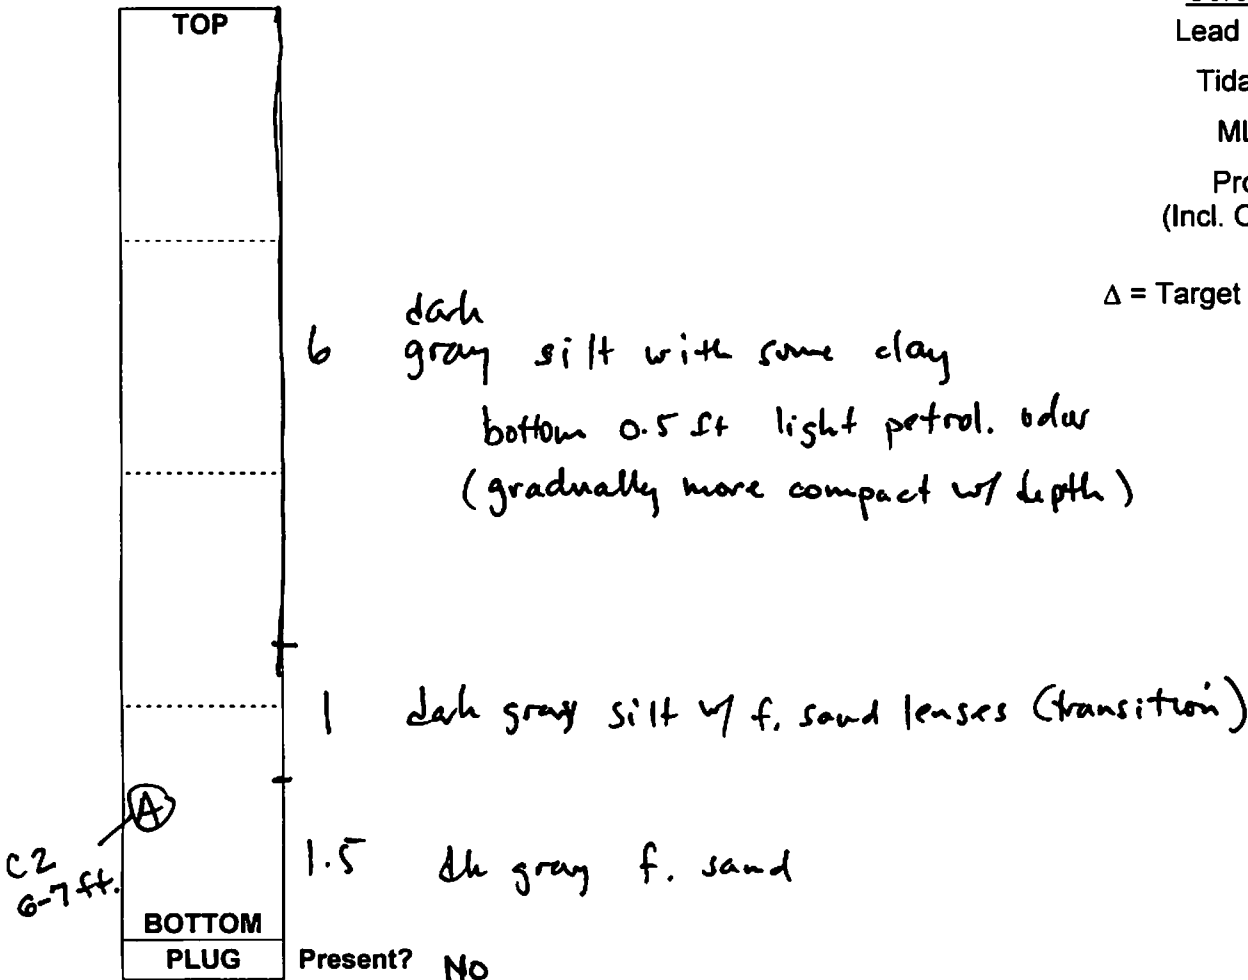 TOP
Lead
Tida
ML
Pro
(Incl. C
Δ = Target
dark
6 gray silt with some clay
bottom 0.5 ft light petrol. odor
(gradually more compact w/ depth)
1 dark gray silt w/ f. sand lenses (transition)
A
C2
6-7 ft.
1.5 dk gray f. sand
BOTTOM
PLUG Present? No